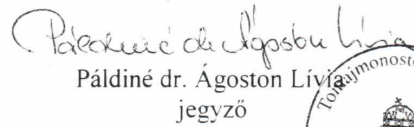 Páldiné dr. Ágoston Lívia
Páldiné dr. Ágoston Lívia
jegyző